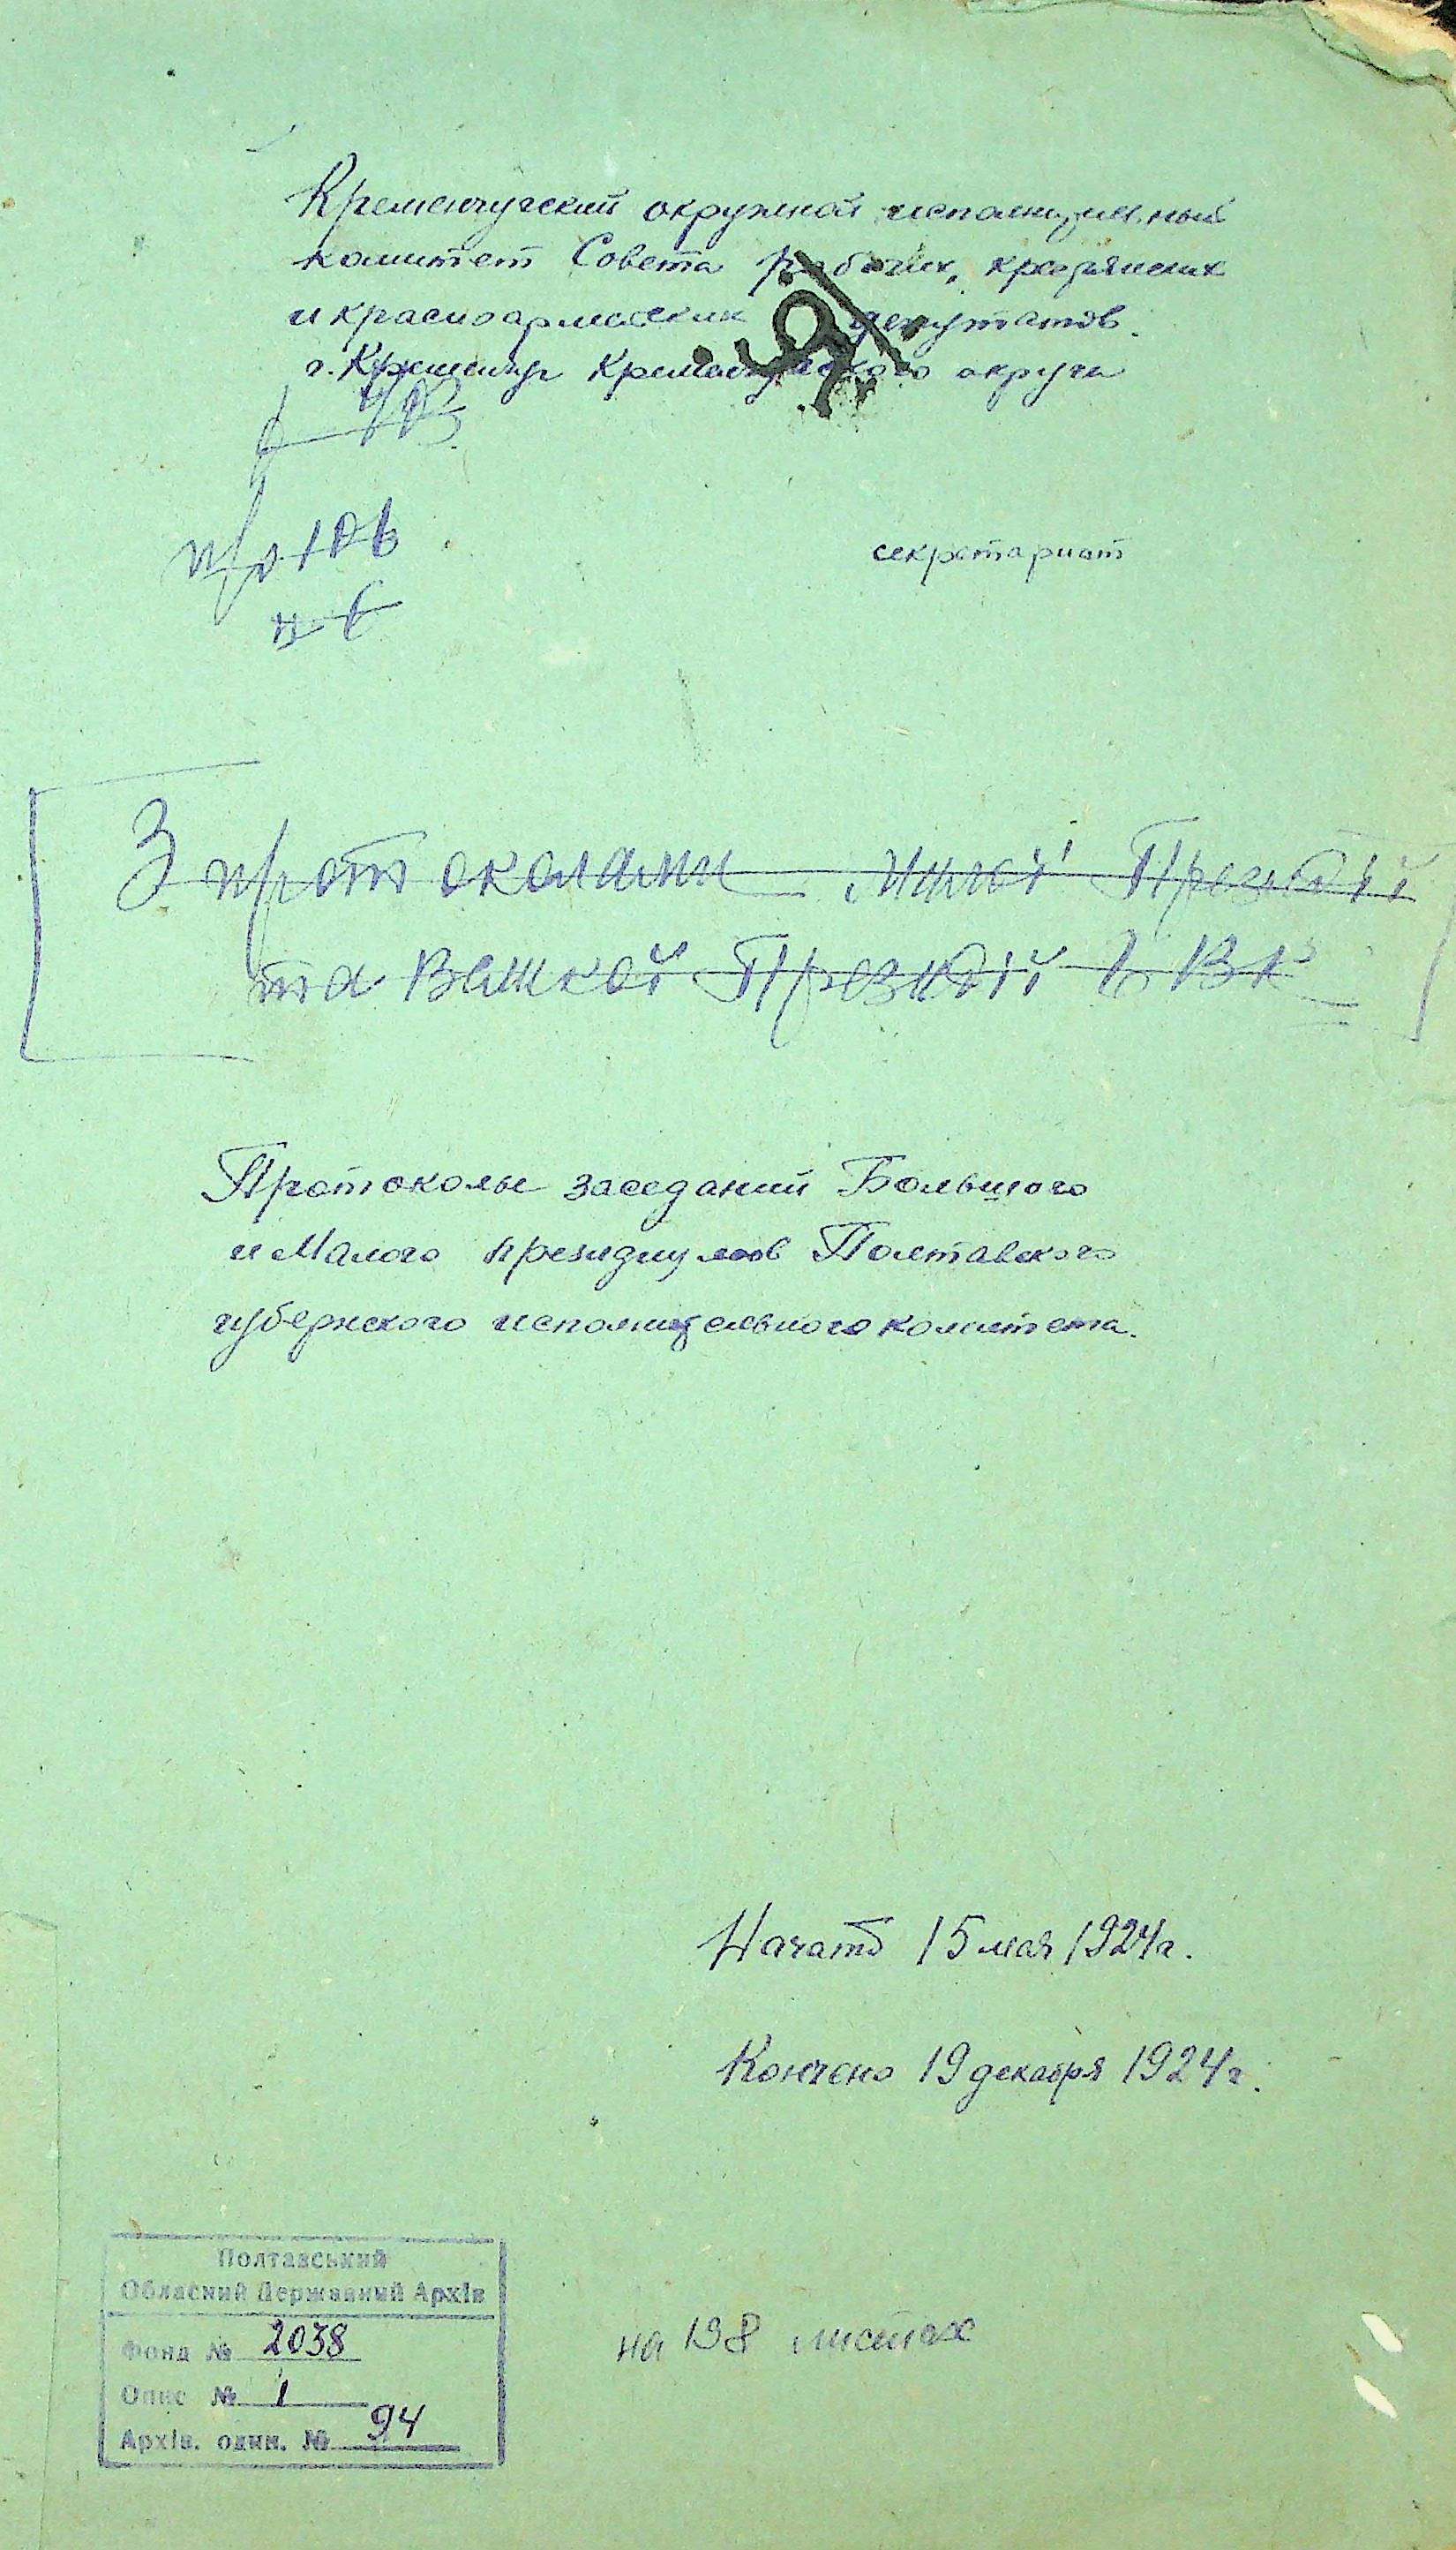 Кременчугский окружной исполнительный
комитет Совета рабочих, крестьянских
и красноармейских депутатов.
г. Кременчуг Кременчугского округа
секретариат
З протоколами Малої Президії
та Великої Президії ВК
Протоколы заседаний Большого
и Малого президиумов Полтавского
губернского исполнительного комитета.
Начато 15 мая 1924 г.
Кончено 19 декабря 1924 г.
Полтавський
Обласний Державний Архів
Фонд № 2038
Опис № 1
Архів. один. № 94
на 198 листах